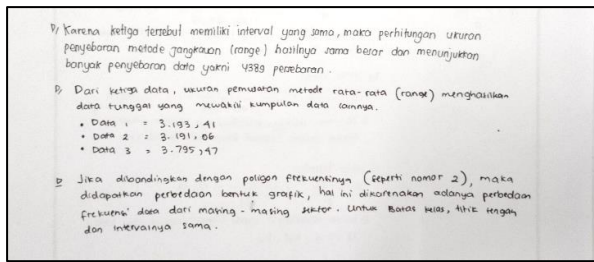 D/ Karena ketiga tersebut memiliki interval yang sama, maka perhitungan ukuran
penyebaran metode jangkauan (range) hasilnya sama besar dan menunjukkan
banyak penyebaran data yakni 4389 persebaran.
D/ Dari ketiga data, ukuran pemusatan metode rata-rata (range) menghasilkan
data tunggal yang mewakili kumpulan data lainnya.
• Data 1 = 3.193,41
• Data 2 = 3.191,06
• Data 3 = 3.795,47
D Jika dibandingkan dengan poligon frekuensinya (seperti nomor 2), maka
didapatkan perbedaan bentuk grafik, hal ini dikarenakan adanya perbedaan
frekuensi data dari masing-masing sektor. Untuk Batas kelas, titik tengah
dan intervalnya sama.